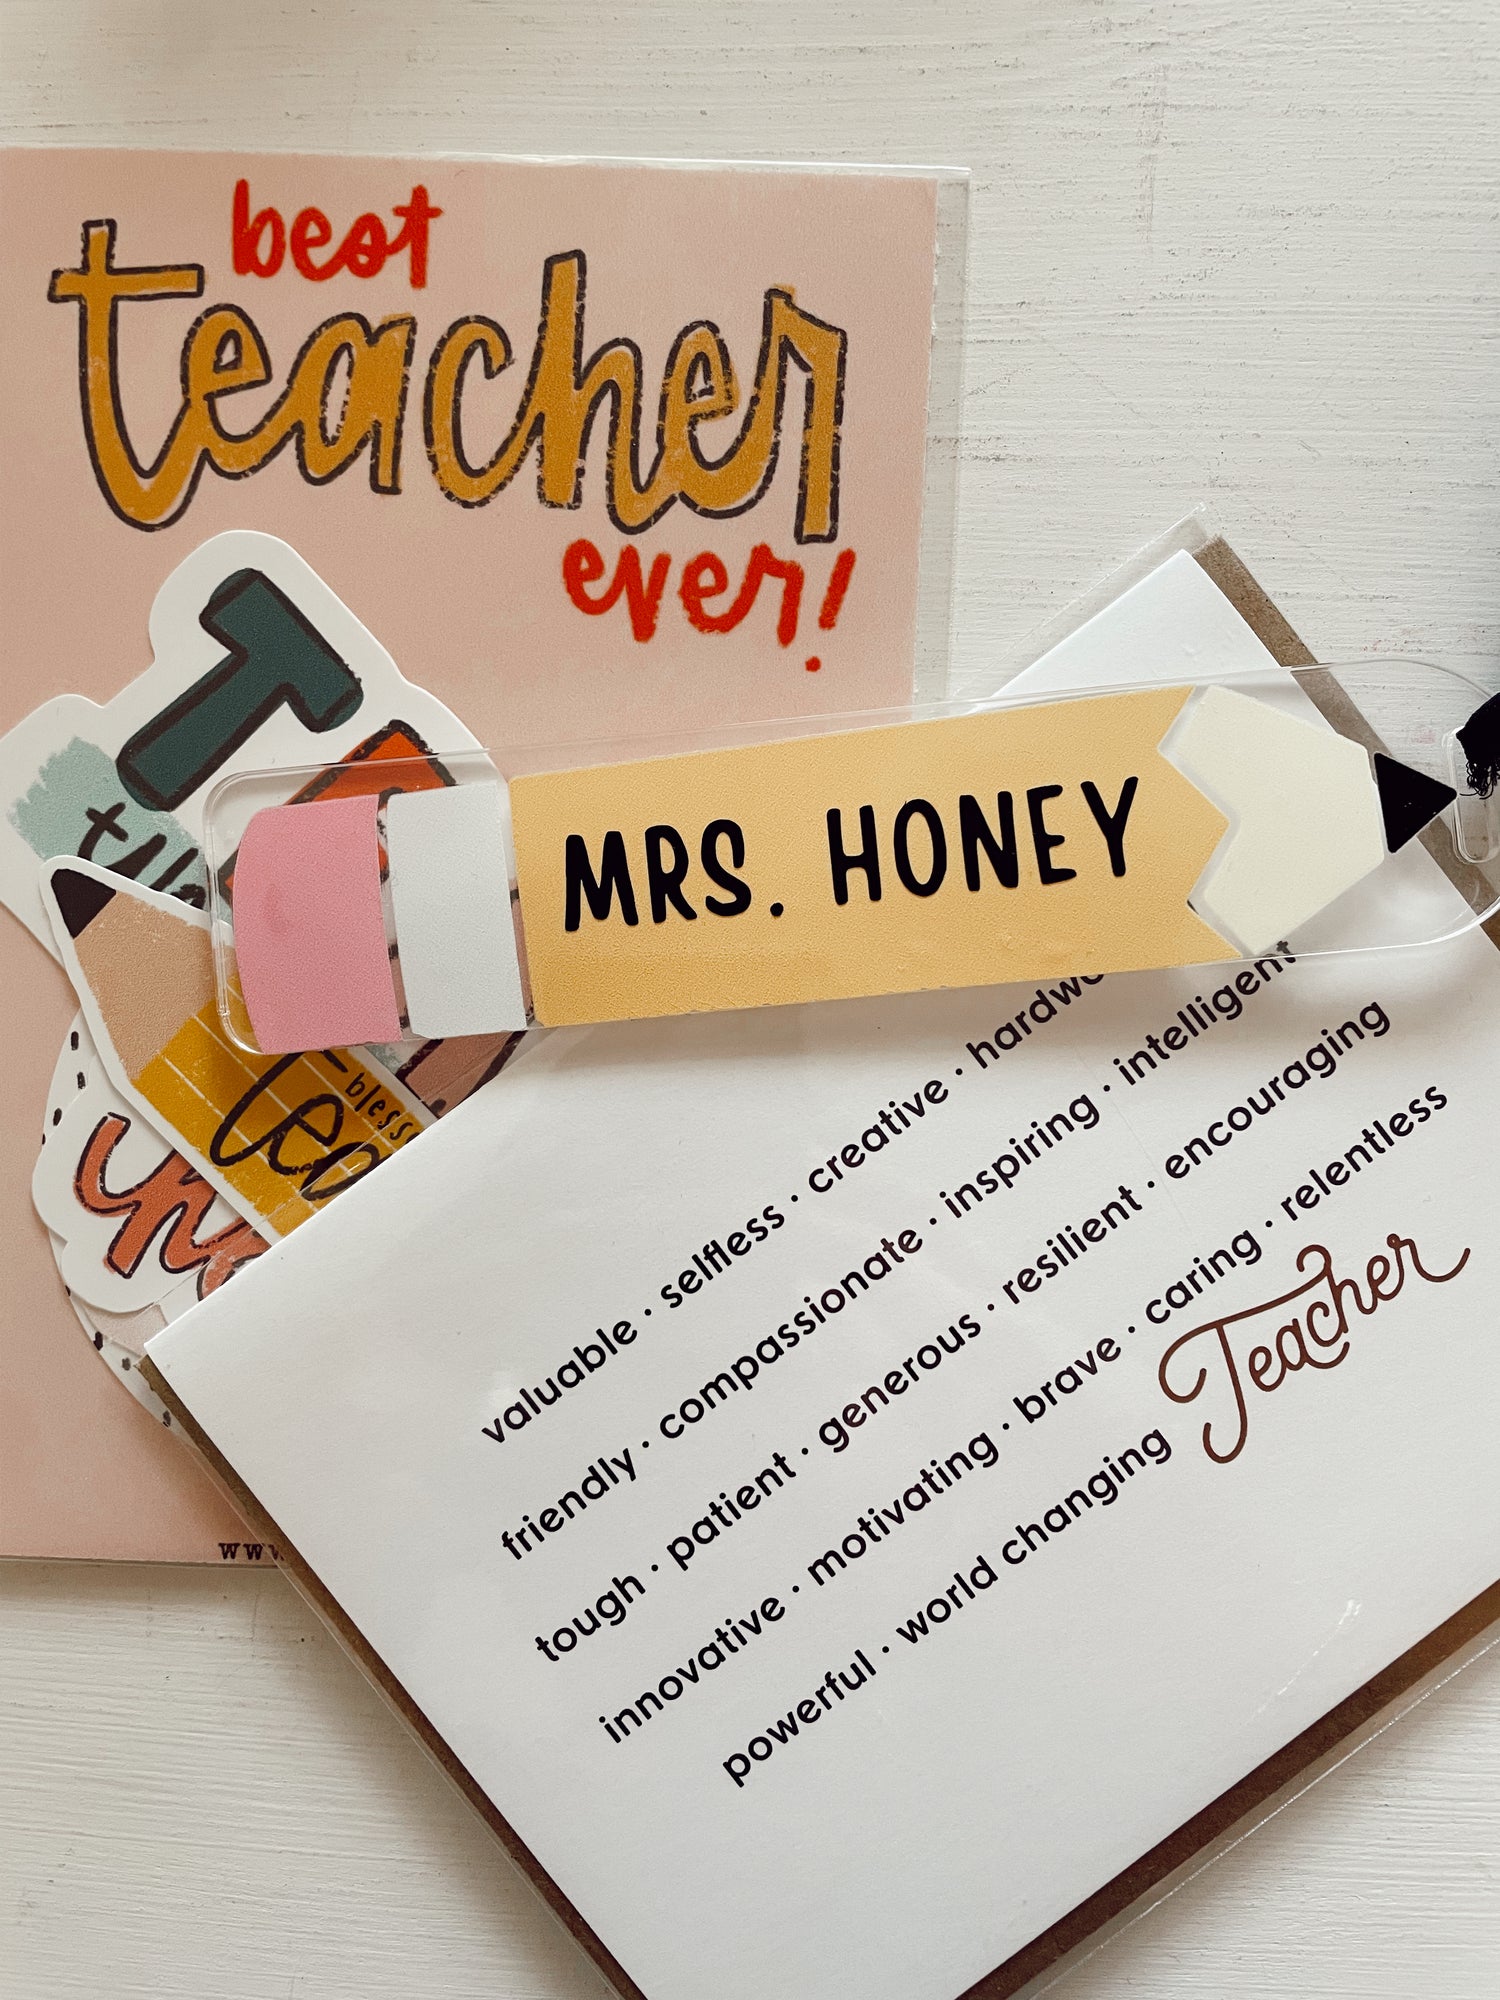 best
teacher
ever!
T
the
MRS. HONEY
blesse
tea
valuable · selfless · creative · hardwo
friendly · compassionate · inspiring · intelligent
tough · patient · generous · resilient · encouraging
innovative · motivating · brave · caring · relentless
powerful · world changing Teacher
www